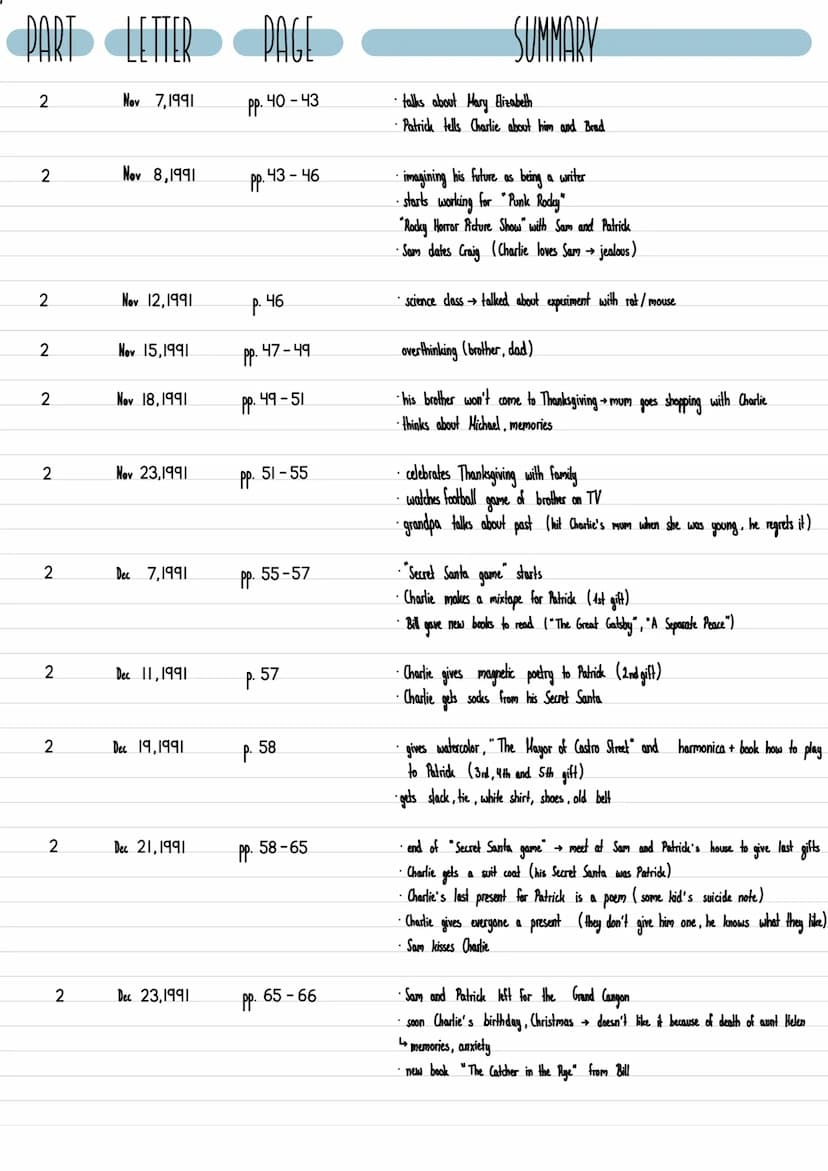 PART LETTER PAGE SUMMARY
2 Nov 7,1991 pp. 40-43 · talks about Mary Elizabeth
· Patrick tells Charlie about him and Brad
2 Nov 8,1991 pp. 43-46 · imagining his future as being a writer
· starts working for "Punk Rocky"
"Rocky Horror Picture Show" with Sam and Patrick
· Sam dates Craig (Charlie loves Sam → jealous)
2 Nov 12,1991 p. 46 · science class → talked about experiment with rat/mouse
2 Nov 15,1991 pp. 47-49 overthinking (brother, dad)
2 Nov 18,1991 pp. 49-51 · his brother won't come to Thanksgiving → mum goes shopping with Charlie
· thinks about Michael, memories
2 Nov 23,1991 pp. 51-55 · celebrates Thanksgiving with family
· watches football game of brother on TV
· grandpa talks about past (hit Charlie's mum when she was young, he regrets it)
2 Dec 7,1991 pp. 55-57 · "Secret Santa game" starts
· Charlie makes a mixtape for Patrick (1st gift)
· Bill gave new books to read ("The Great Gatsby", "A Separate Peace")
2 Dec 11,1991 p. 57 · Charlie gives magnetic poetry to Patrick (2nd gift)
· Charlie gets socks from his Secret Santa
2 Dec 19,1991 p. 58 · gives watercolor, "The Mayor of Castro Street" and harmonica + book how to play
to Patrick (3rd, 4th and 5th gift)
· gets slack, tie, white shirt, shoes, old belt
2 Dec 21,1991 pp. 58-65 · end of "Secret Santa game" → meet at Sam and Patrick's house to give last gifts
· Charlie gets a suit coat (his Secret Santa was Patrick)
· Charlie's last present for Patrick is a poem (some kid's suicide note)
· Charlie gives everyone a present (they don't give him one, he knows what they like)
· Sam kisses Charlie
2 Dec 23,1991 pp. 65-66 · Sam and Patrick left for the Grand Canyon
· soon Charlie's birthday, Christmas → doesn't like it because of death of aunt Helen
↳ memories, anxiety
· new book "The Catcher in the Rye" from Bill